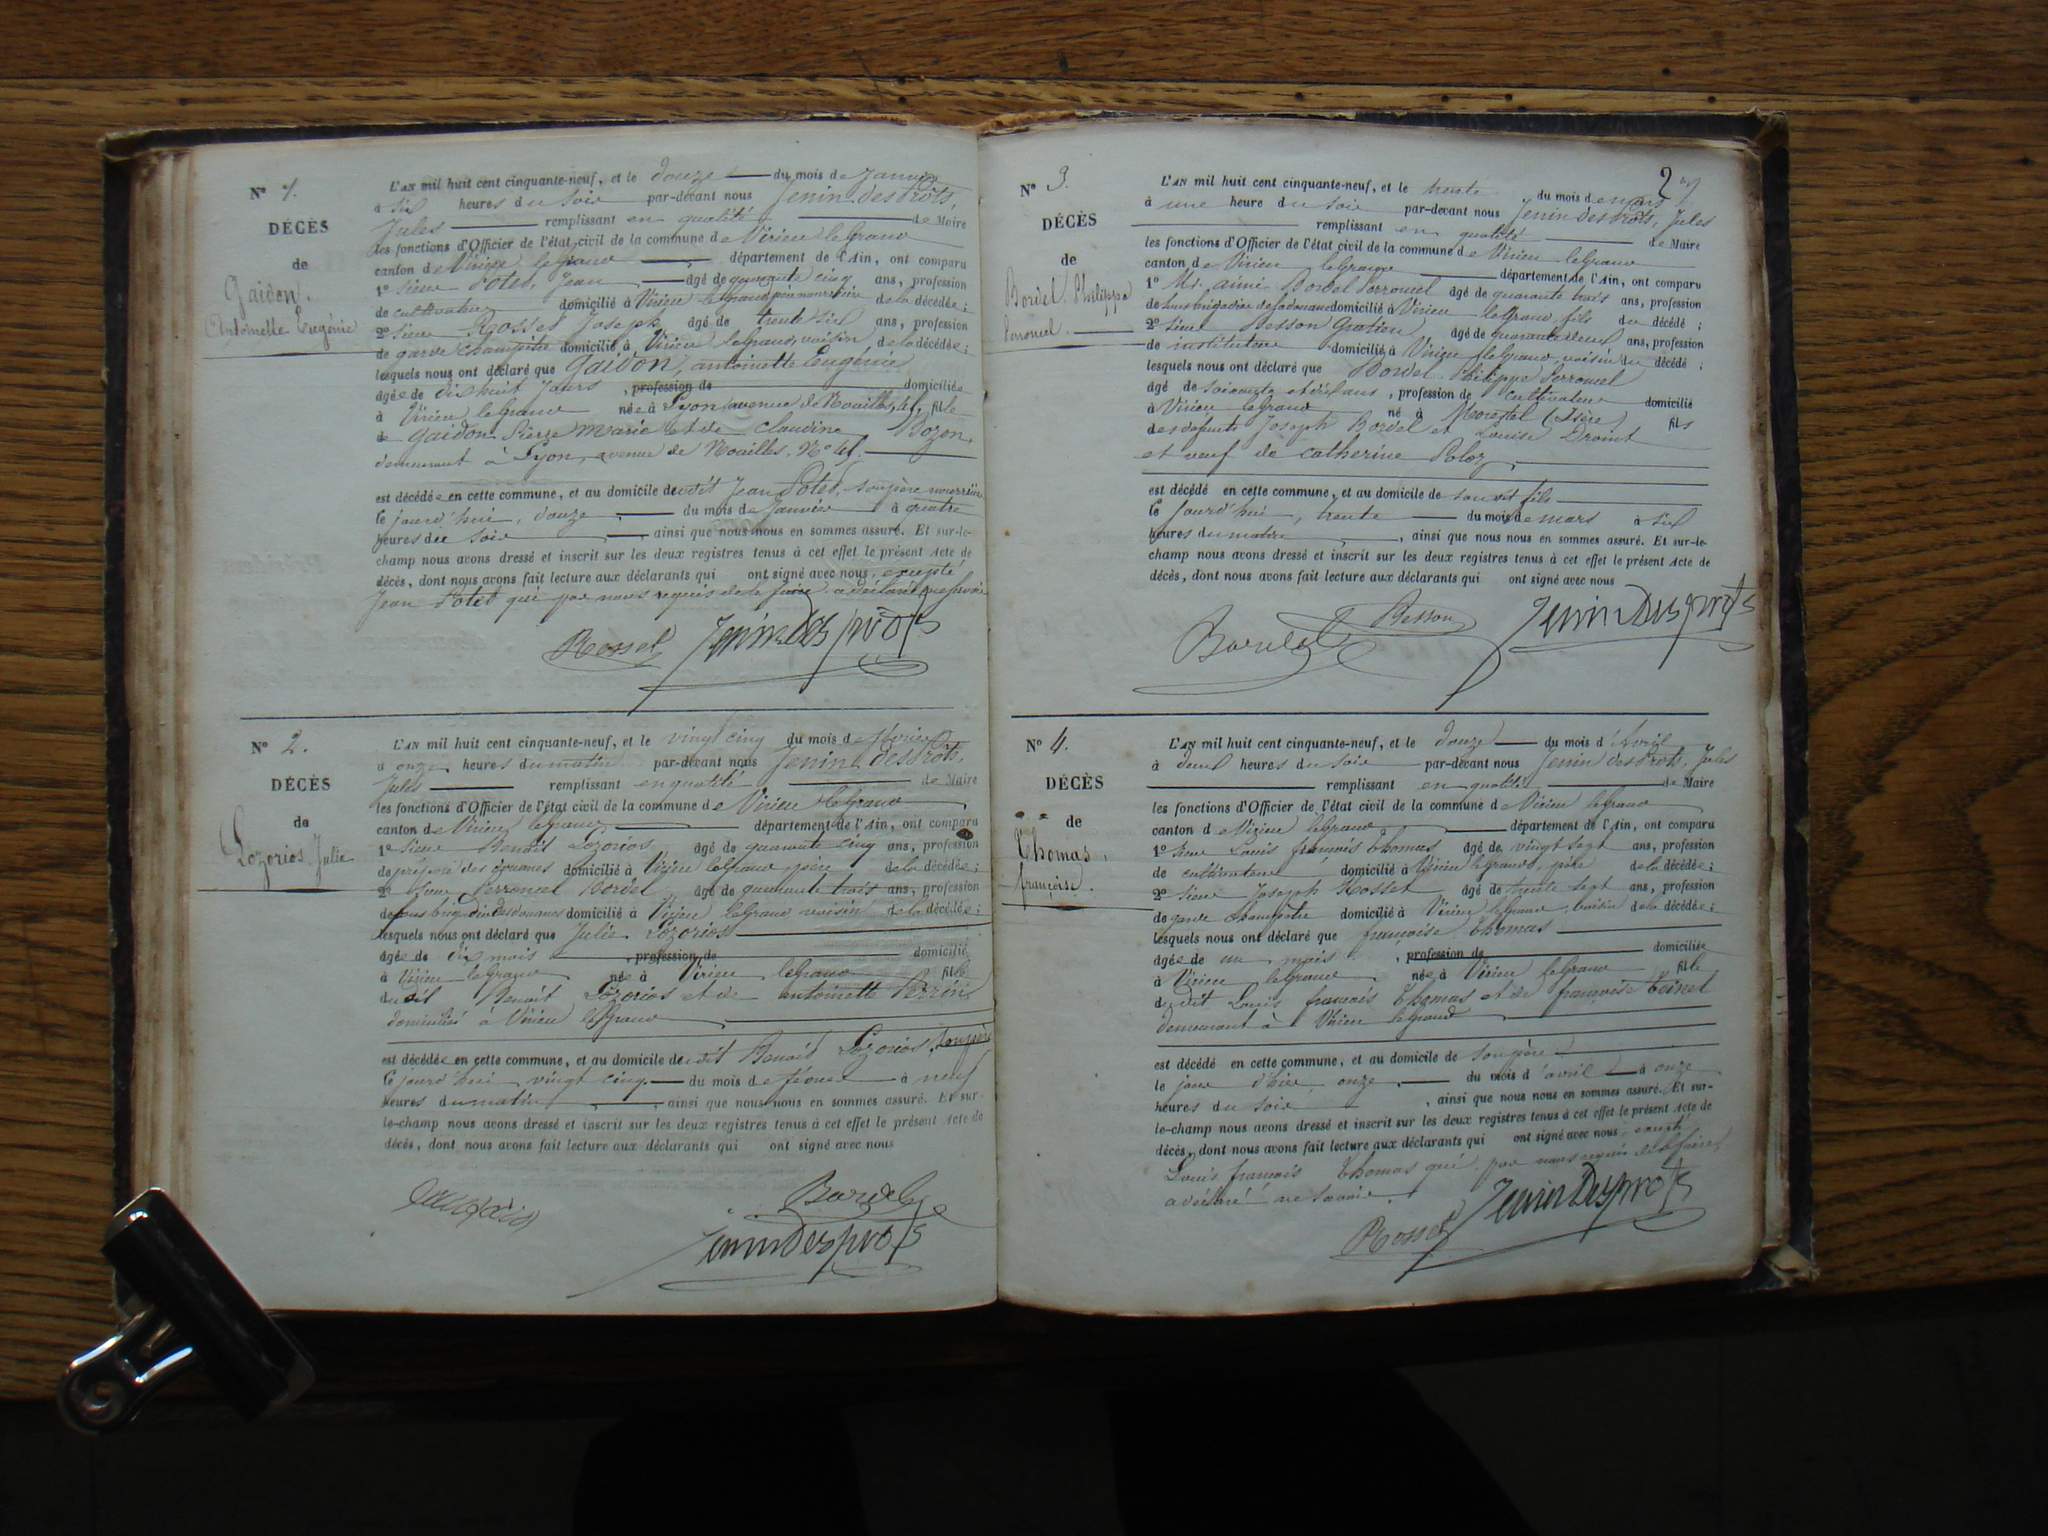 N° 1.
DÉCÈS
de
Gaidon.
Antoinette Eugénie
L'AN mil huit cent cinquante-neuf, et le douze du mois de Janvier
à six heures du soir par-devant nous Jenin desprôts,
Jules remplissant en qualité de Maire
les fonctions d'Officier de l'état civil de la commune de Virieu leGrand
canton de Virieu leGrand département de l'Ain, ont comparu
1° sieur Potet, Jean âgé de quarante cinq ans, profession
de cultivateur domicilié à Virieu leGrand père nourricier de la décédée;
2° sieur Rosset Joseph âgé de trente six ans, profession
de garde champêtre domicilié à Virieu leGrand, voisin, de la décédée;
lesquels nous ont déclaré que Gaidon, antoinette Eugénie
âgée de dix huit jours , profession de domiciliée
à Virieu leGrand née à Lyon, avenue de Noailles, 41, fille
de Gaidon Pierre Marie et de Claudine Bozon,
demeurant à Lyon, avenue de Noailles, N° 41.
est décédée en cette commune, et au domicile dudit Jean Potet, son père nourricier
le jourd'hui, douze du mois de Janvier à quatre
heures du soir , ainsi que nous nous en sommes assuré. Et sur-le-
champ nous avons dressé et inscrit sur les deux registres tenus à cet effet le présent Acte de
décès, dont nous avons fait lecture aux déclarants qui ont signé avec nous, excepté
Jean Potet qui par nous requis de le faire a déclaré ne savoir
Rosset Jenin Desprôts
N° 2.
DÉCÈS
de
Lozorios Julie
L'AN mil huit cent cinquante-neuf, et le vingt cinq du mois de février
à onze heures du matin par-devant nous Jenin desprôts,
Jules remplissant en qualité de Maire
les fonctions d'Officier de l'état civil de la commune de Virieu leGrand
canton de Virieu leGrand département de l'Ain, ont comparu
1° sieur Benoît Lozorios âgé de quarante cinq ans, profession
de préposé des douanes domicilié à Virieu leGrand père de la décédée;
2° sieur Perroncel Bordel âgé de quarante trois ans, profession
de sous brigadier des douanes domicilié à Virieu leGrand voisin de la décédée;
lesquels nous ont déclaré que Julie Lozorios
âgée de dix mois , profession de domiciliée
à Virieu leGrand née à Virieu leGrand fille
dudit Benoit Lozorios et de antoinette Perrin
domiciliés à Virieu leGrand
est décédée en cette commune, et au domicile dudit Benoit Lozorios, son père
le jourd'hui vingt cinq du mois de février à neuf
heures du matin , ainsi que nous nous en sommes assuré. Et sur-
le-champ nous avons dressé et inscrit sur les deux registres tenus à cet effet le présent Acte de
décès, dont nous avons fait lecture aux déclarants qui ont signé avec nous
Bardel
Jenin Desprôts
2
N° 3.
DÉCÈS
de
Bordel Philippe
Perroncel.
L'AN mil huit cent cinquante-neuf, et le trente du mois de mars
à une heure du soir par-devant nous Jenin desprôts, Jules
remplissant en qualité de Maire
les fonctions d'Officier de l'état civil de la commune de Virieu leGrand
canton de Virieu leGrand département de l'Ain, ont comparu
1° Mr. aimé Bordel Perroncel âgé de quarante trois ans, profession
de sous brigadier de la douane domicilié à Virieu leGrand, fils du décédé;
2° sieur Besson Gratien âgé de quarante deux ans, profession
de instituteur domicilié à Virieu leGrand, voisin du décédé;
lesquels nous ont déclaré que Bordel Philippe Perroncel
âgé de soixante et dix ans , profession de cultivateur domicilié
à Virieu leGrand né à Morestel (Isère) fils
des défunts Joseph Bordel et Louise Droint
et veuf de catherine Poloz
est décédé en cette commune, et au domicile de son dit fils
le jourd'hui, trente du mois de mars à six
heures du matin , ainsi que nous nous en sommes assuré. Et sur-le-
champ nous avons dressé et inscrit sur les deux registres tenus à cet effet le présent Acte de
décès, dont nous avons fait lecture aux déclarants qui ont signé avec nous
Bardel Besson Jenin Desprôts
N° 4.
DÉCÈS
de
Thomas,
françoise.
L'AN mil huit cent cinquante-neuf, et le douze du mois d'Avril
à deux heures du soir par-devant nous Jenin desprôts, Jules
remplissant en qualité de Maire
les fonctions d'Officier de l'état civil de la commune de Virieu leGrand
canton de Virieu leGrand département de l'Ain, ont comparu
1° sieur Louis françois Thomas âgé de vingt sept ans, profession
de cultivateur domicilié à Virieu leGrand, père de la décédée;
2° sieur Joseph Rosset âgé de trente sept ans, profession
de garde champêtre domicilié à Virieu leGrand, voisin de la décédée;
lesquels nous ont déclaré que françoise Thomas
âgée de un mois , profession de domiciliée
à Virieu leGrand née à Virieu leGrand fille
dudit Louis françois Thomas et de françoise Teinet
demeurant à Virieu leGrand
est décédé en cette commune, et au domicile de son père
le jour d'hier onze du mois d'avril à onze
heures du soir , ainsi que nous nous en sommes assuré. Et sur-
le-champ nous avons dressé et inscrit sur les deux registres tenus à cet effet le présent Acte de
décès, dont nous avons fait lecture aux déclarants qui ont signé avec nous excepté
Louis françois Thomas qui par nous requis de le faire,
a déclaré ne savoir.
Rosset Jenin Desprôts